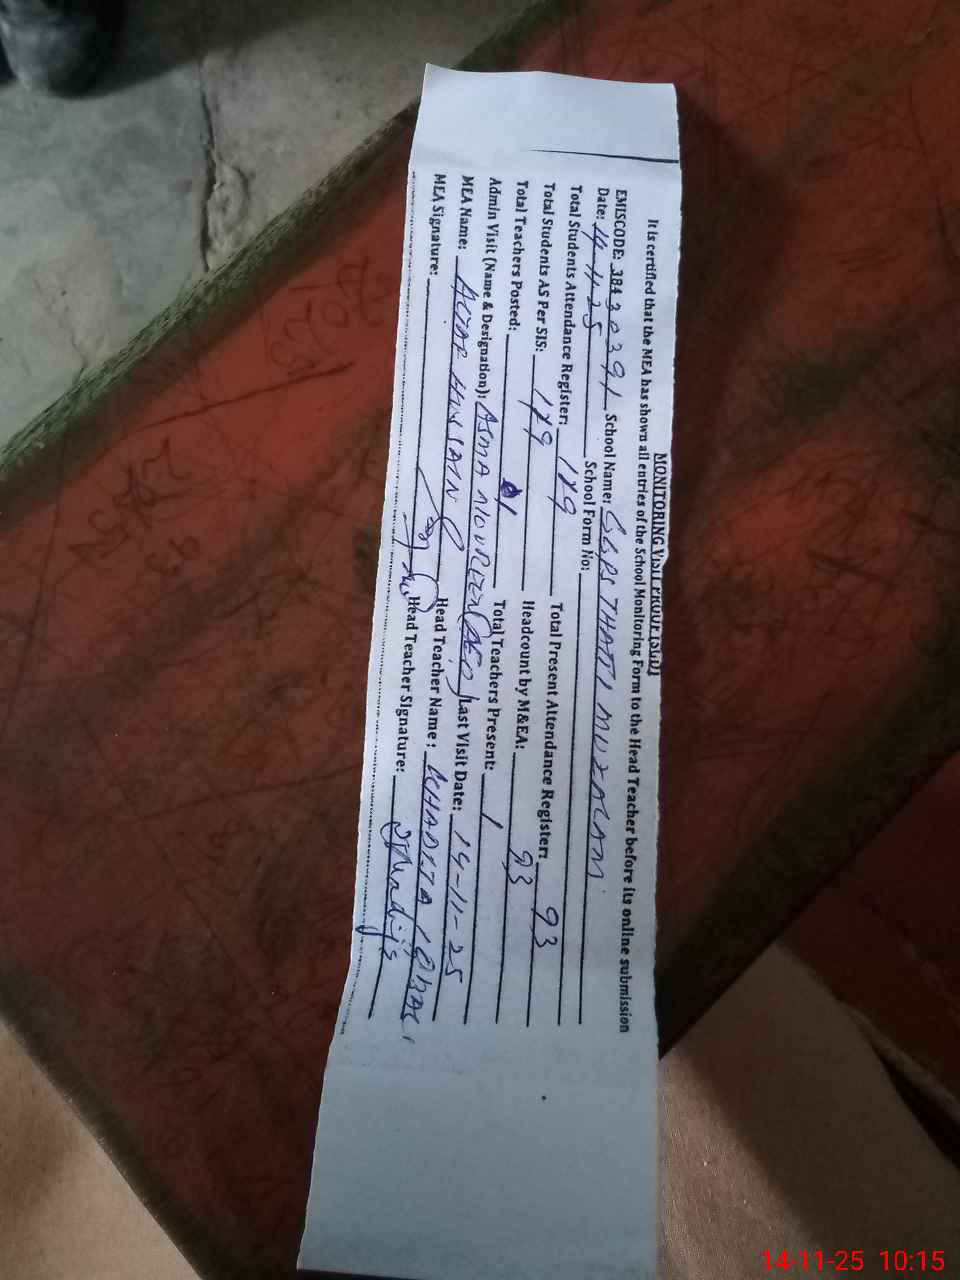 MONITORING VISIT PROOF [SGD]
It is certified that the MEA has shown all entries of the School Monitoring Form to the Head Teacher before its online submission
EMISCODE: 38430391 School Name: GGPS THATTI MUZALAM
Date: 14-11-25 School Form No:
Total Students Attendance Register: 179 Total Present Attendance Register: 93
Total Students AS Per SIS: 179 Headcount by M&EA: 93
Total Teachers Posted: 1 Total Teachers Present: 1
Admin Visit (Name & Designation): ASMA NOUREEN (AEO) Last Visit Date: 14-11-25
MEA Name: ALTAF HUSSAIN Head Teacher Name: KHADIJA IQBAL
MEA Signature: Head Teacher Signature: Khadija
14-11-25 10:15